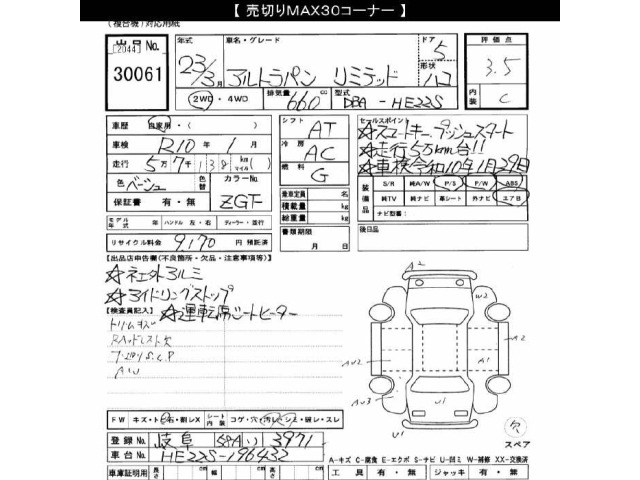 【 売切りMAX30コーナー 】
(複合機)対応用紙
出品No.
(2044)
30061
年式 車名・グレード ドア 評価点
23/3月 アルトラパン リミテッド 5 3.5
形状 ハコ
2WD・4WD 排気量 660 cc 型式 DBA-HE22S
内装 C
車歴 自家用・( )
シフト AT
セールスポイント
☆スマートキー プッシュスタート
車検 R10年 1月
冷房 AC
☆走行5万km台!!
走行 5万7千138 km(マイル)
燃料 G
☆車検令和10年1月29日
色 ベージュ 色替 カラーNo. ZGT
装備品 S/R 純A/W P/S P/W ABS
純TV 純ナビ 革シート 外ナビ エアB
ナビ型番:
保証書 有・無
乗車定員 名
積載量 kg
総重量 kg
モデル年式 年 ハンドル 左・右 ディーラー・並行
書類期限 月 日
後日品
リサイクル料金 9,170 円 預託済
【出品店申告欄(不良箇所・欠品・注意事項等)】
☆社外アルミ
☆アイドリングストップ
【検査員記入】 ☆運転席シートヒーター
トリムキズ
A2
W2
A2
A1
U1
U1
欠
スペア
FW キズ・ト・石・割レX シート内装 コゲ・穴・汚レ・シミ・破レ・スレ
登録No. 岐阜 3971
車台No. HE22S-196432
A-キズ C-腐食 E-エクボ S-サビ U-凹ミ W-補修 XX-交換済
車庫証明用 長さ cm 幅 cm 高さ cm 工具 有・無 ジャッキ 有・無